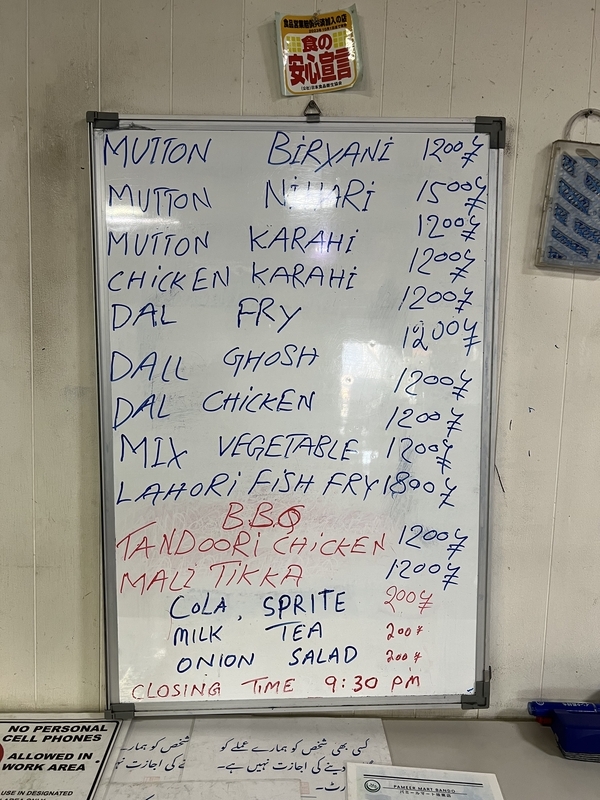 食の
安心宣言
MUTTON BIRYANI 1200¥
MUTTON NIHARI 1500¥
MUTTON KARAHI 1200¥
CHICKEN KARAHI 1200¥
DAL FRY 1200¥
DALL GHOSH 1200¥
DAL CHICKEN 1200¥
MIX VEGETABLE 1200¥
1200¥
LAHORI FISH FRY 1800¥
B.B.Q
TANDOORI CHICKEN 1200¥
MALI TIKKA 1200¥
COLA, SPRITE 200¥
MILK TEA 200¥
ONION SALAD 200¥
CLOSING TIME 9:30 PM
NO PERSONAL
CELL PHONES
ALLOWED IN
WORK AREA
USE IN DESIGNATED
شخص کو ہمارے
کی اجازت نہیں
کسی بھی شخص کو ہمارے عملے کو
دینے کی اجازت نہیں ہے۔
PAMEER MART BANDO